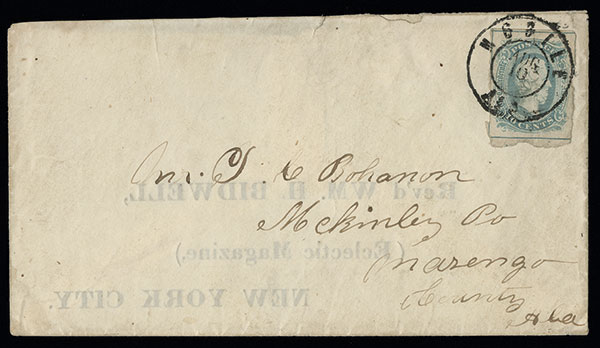 MOBILE
ALA
TEN CENTS
Mr. J. C Bohanon
Mckinley Po
Marengo
County
Ala
Rev'd WM. H. BIDWELL,
(Eclectic Magazine,)
NEW YORK CITY.